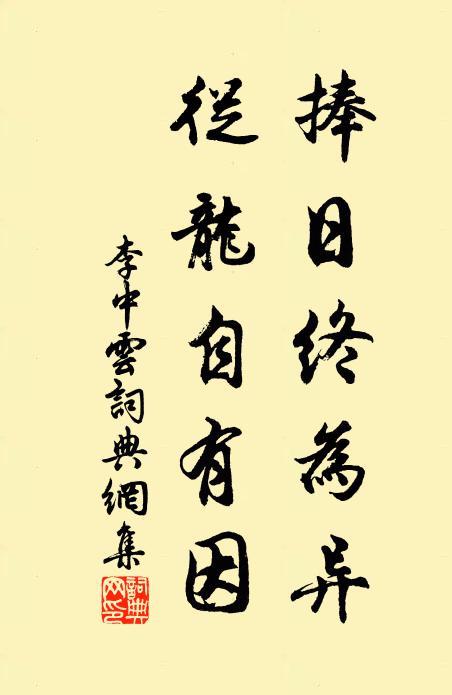 捧日终為异
從龍自有因
李中雲詞典網集
詞典网印